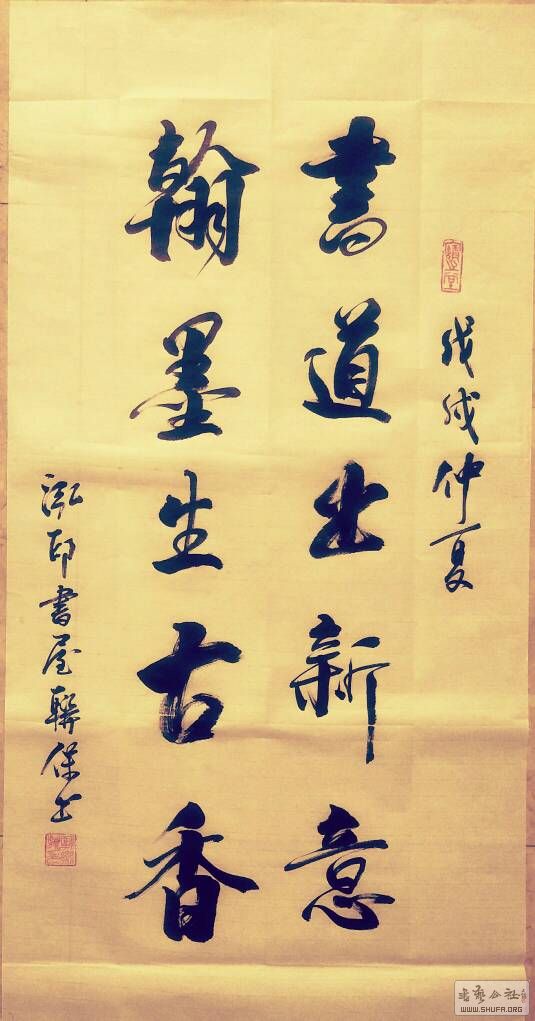 戊戌仲夏
書道出新意
翰墨生古香
泓印書屋聯保書
書藝公社
WWW.SHUFA.ORG